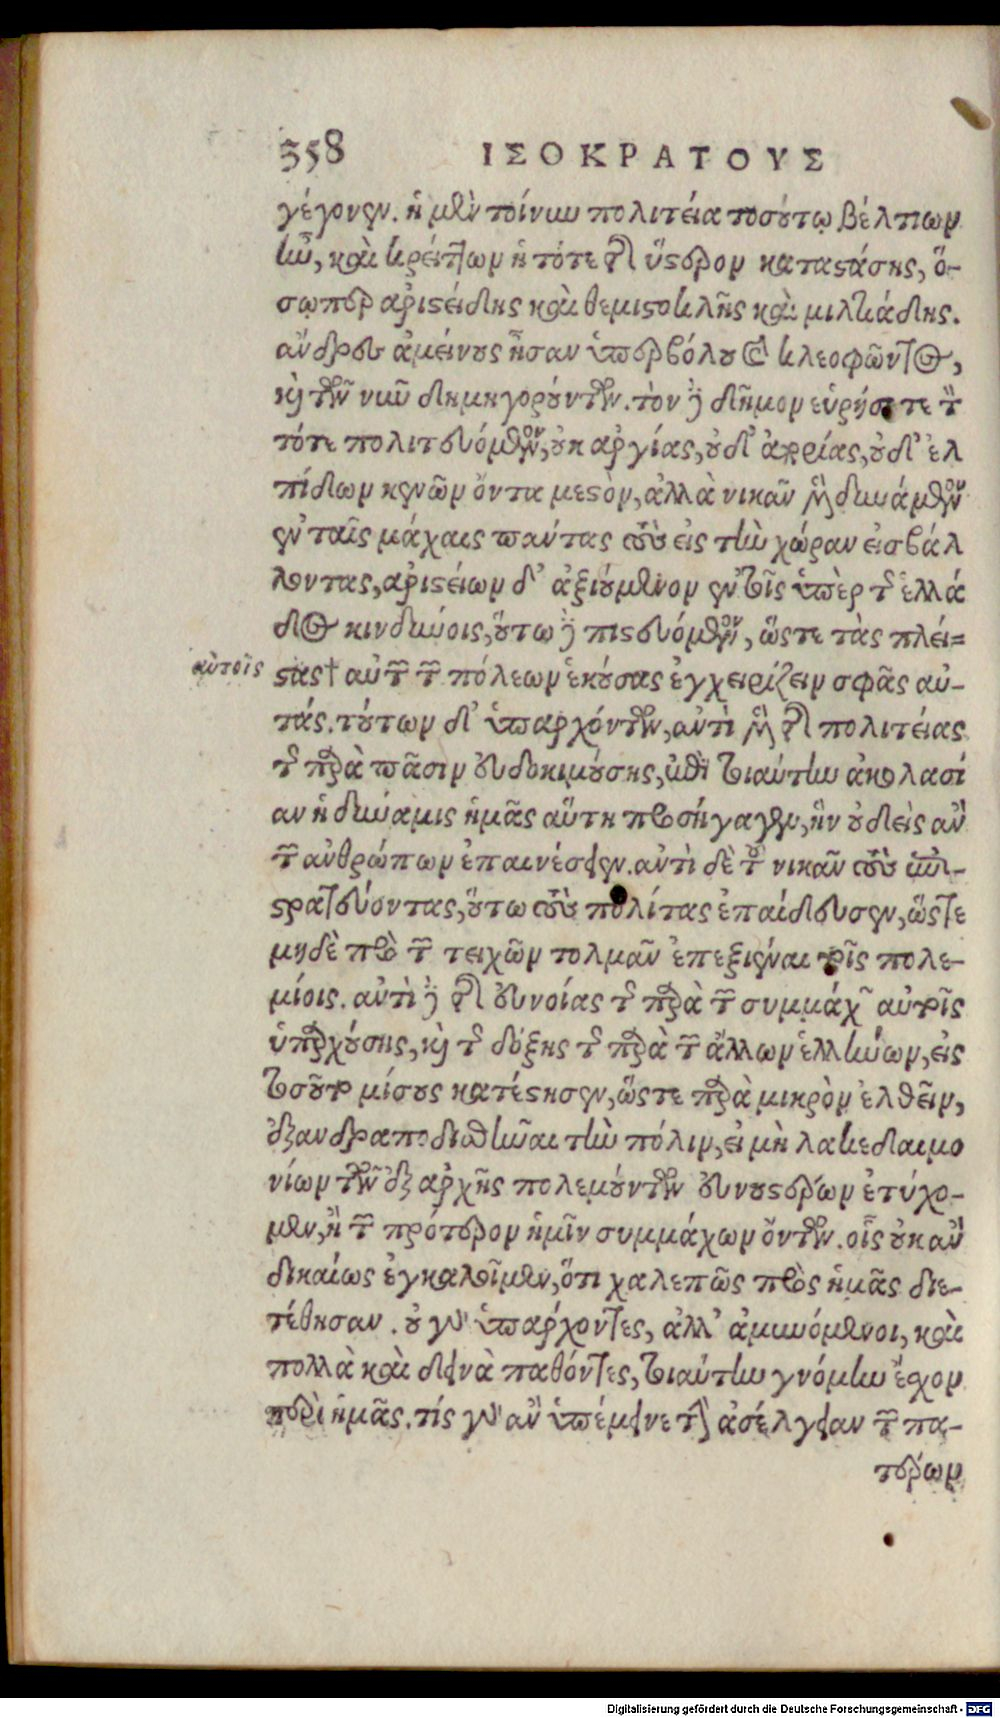 358 ΙΣΟΚΡΑΤΟΥΣ
γέγονεν. ἡ μὲν τοίνυν πολιτεία τοσούτῳ βέλτιων
ἦν, καὶ κρείττων ἡ τότε τῆς ὕστερον καταστάσης, ὅ-
σῳπερ ἀριστείδης καὶ θεμιστοκλῆς καὶ μιλτιάδης.
ἄνδρες ἀμείνους ἦσαν ὑπερβόλου καὶ κλεοφῶντος,
καὶ τῶν νῦν δημηγορούντων. τὸν δὲ δῆμον εὑρήσετε τὸν
τότε πολιτευόμενον, οὐκ ἀργίας, οὐδ' ἀπορίας, οὐδ' ἐλ
πίδων κενῶν ὄντα μεστὸν, ἀλλὰ νικᾶν μὲν δυνάμενον
ἐν ταῖς μάχαις πάντας τοὺς εἰς τὴν χώραν εἰσβάλ
λοντας, ἀριστείων δ' ἀξιούμενον ἐν τοῖς ὑπὲρ τῆς ἑλλά
δος κινδύνοις, οὕτω δὲ πιστευόμενον, ὥστε τὰς πλεί=
αὐτοῖς
στας† αὐτῶν τῶν πόλεων ἑκούσας ἐγχειρίζειν σφᾶς αὐ-
τάς. τούτων δ' ὑπαρχόντων, ἀντὶ μὲν τῆς πολιτείας
τῆς παρὰ πᾶσιν εὐδοκιμούσης, ἐπὶ τοιαύτην ἀκολασί
αν ἡ δύναμις ἡμᾶς αὕτη προσήγαγεν, ἣν οὐδεὶς ἂν
τῶν ἀνθρώπων ἐπαινέσειεν. ἀντὶ δὲ τοῦ νικᾶν τοὺς ἐπι-
στρατεύοντας, οὕτω τοὺς πολίτας ἐπαίδευσεν, ὥστε
μηδὲ πρὸ τῶν τειχῶν τολμᾶν ἐπεξιέναι τοῖς πολε-
μίοις. ἀντὶ δὲ τῆς εὐνοίας τῆς παρὰ τῶν συμμάχων αὐτοῖς
ὑπαρχούσης, καὶ τῆς δόξης τῆς παρὰ τῶν ἄλλων ἑλλήνων, εἰς
τοσοῦτο μίσους κατέστησεν, ὥστε παρὰ μικρὸν ἐλθεῖν,
ἐξανδραποδισθῆναι τὴν πόλιν, εἰ μὴ λακεδαιμο
νίων τῶν ἐξ ἀρχῆς πολεμούντων εὐνουστέρων ἐτύχο-
μεν, ἢ τῶν πρότερον ἡμῖν συμμάχων ὄντων. οἷς οὐκ ἂν
δικαίως ἐγκαλοῖμεν, ὅτι χαλεπῶς πρὸς ἡμᾶς διε-
τέθησαν. οὐ γὰρ ὑπάρχοντες, ἀλλ' ἀμυνόμενοι, καὶ
πολλὰ καὶ δεινὰ παθόντες, τοιαύτην γνόμην ἔχον
περὶ ἡμᾶς. τίς γὰρ ἂν ὑπέμεινε τὴν ἀσέλγειαν τῶν πα-
τέρων
Digitalisierung gefördert durch die Deutsche Forschungsgemeinschaft - DFG